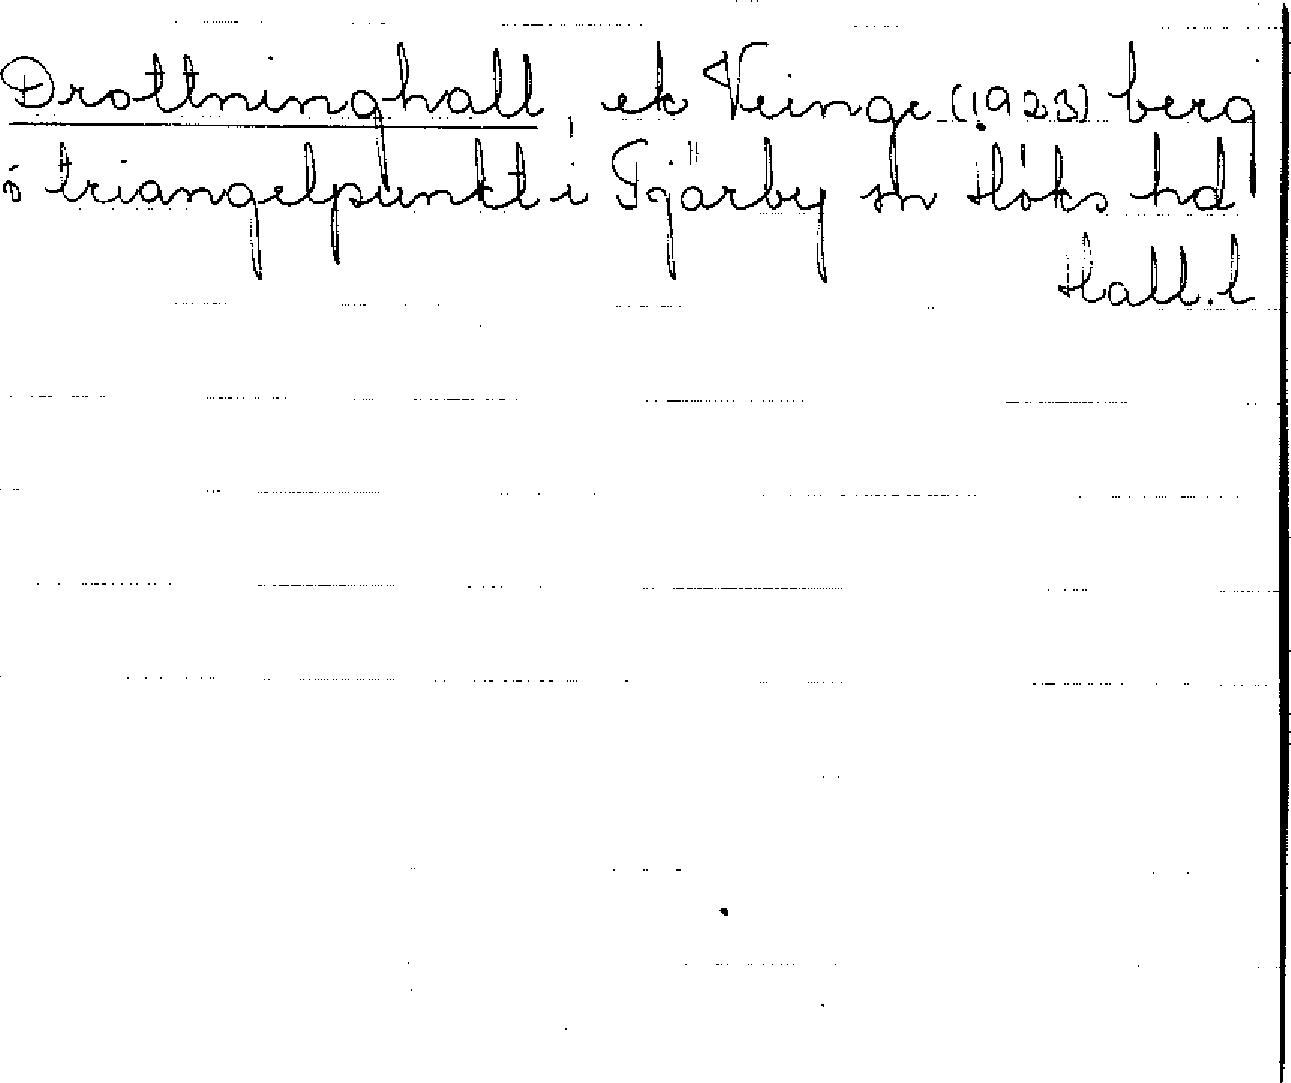 Drottninghall ek Veinge (1923) berg
ö triangelpunkt i Tjärby sn Höks hd
Hall. l